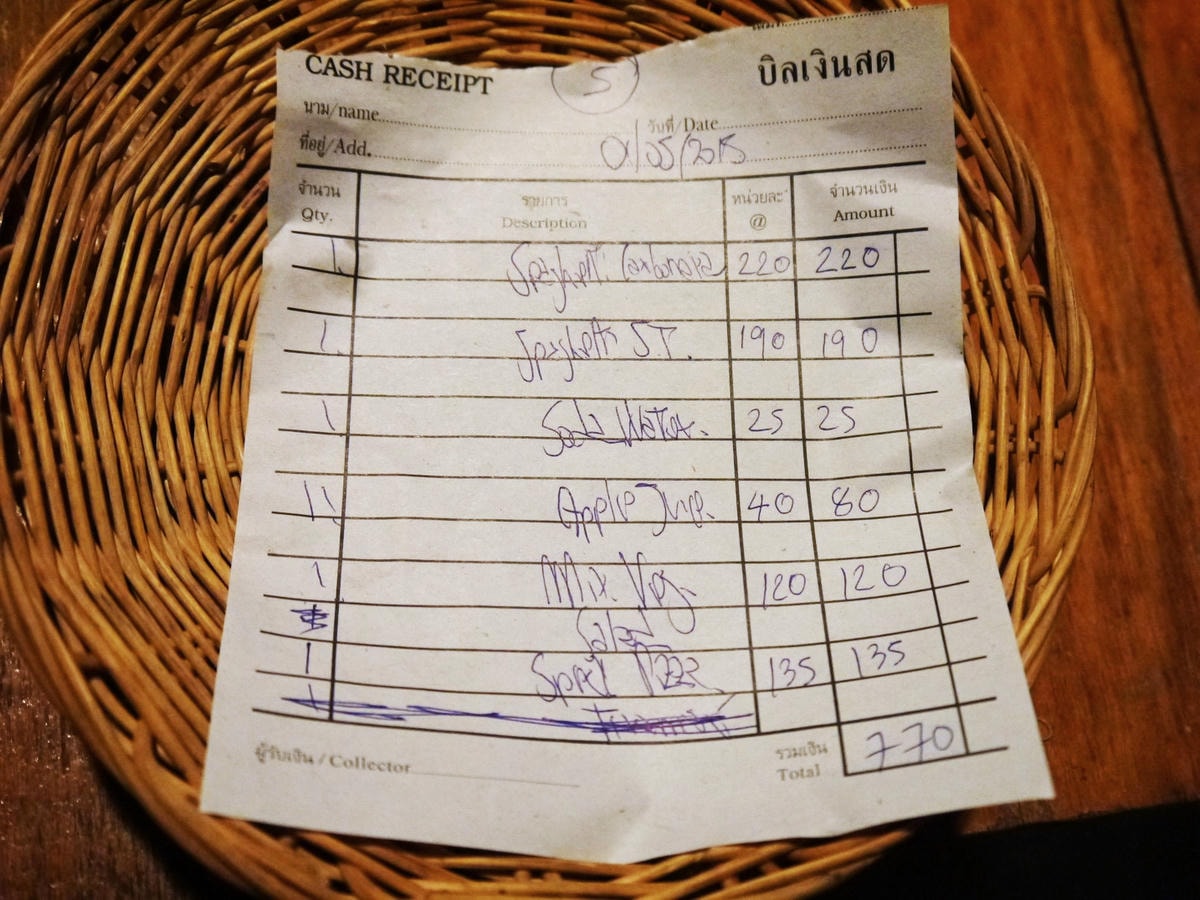 CASH RECEIPT 5 บิลเงินสด
นาม/name วันที่/Date
ที่อยู่/Add. 01/05/2015
จำนวน รายการ หน่วยละ จำนวนเงิน
Qty. Description @ Amount
1 Spaghetti Carbonara 220 220
1 Spaghetti S.T. 190 190
1 Soda Water. 25 25
11 Apple Juice. 40 80
1 Mix. Veg. 120 120
1 135 135
ผู้รับเงิน / Collector รวมเงิน
Total 770